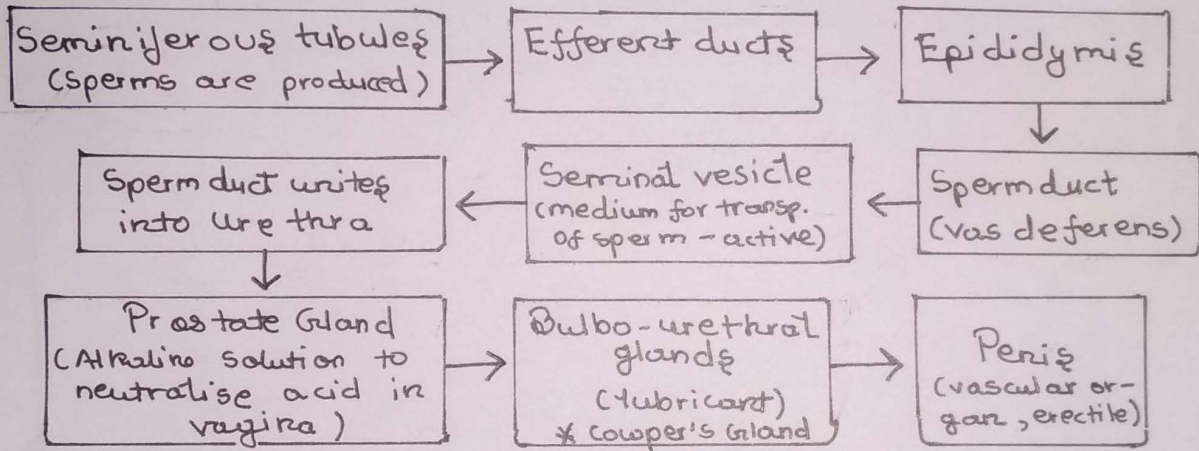 Seminiferous tubules
(sperms are produced)
Efferent ducts
Epididymis
Sperm duct
(vas deferens)
Seminal vesicle
(medium for transp.
of sperm - active)
Sperm duct unites
into urethra
Prostate Gland
(Alkaline solution to
neutralise acid in
vagina)
Bulbo-urethral
glands
(lubricant)
* Cowper's Gland
Penis
(vascular or-
gan, erectile)